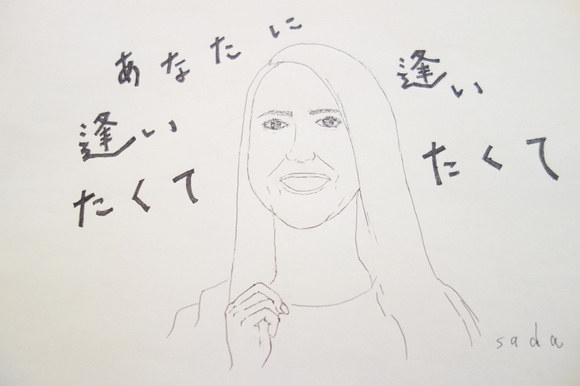 あなたに
逢い
たくて
逢い
たくて
sada